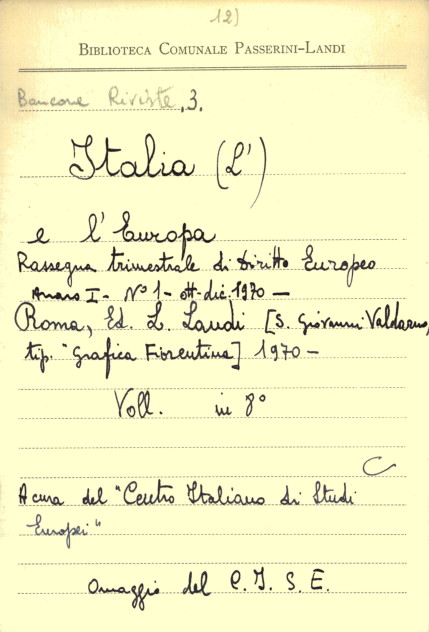 12)
BIBLIOTECA COMUNALE PASSERINI-LANDI
Bancone Riviste, 3.
Italia (L')
e l'Europa
Rassegna trimestrale di Diritto Europeo
Anno I - N° 1 - ott. dic. 1970 -
Roma, Ed. L. Landi [S. Giovanni Valdarno,
tip. "Grafica Fiorentina] 1970 -
Voll. in 8°
C
A cura del "Centro Italiano di Studi
Europei"
Omaggio del C. I. S. E.